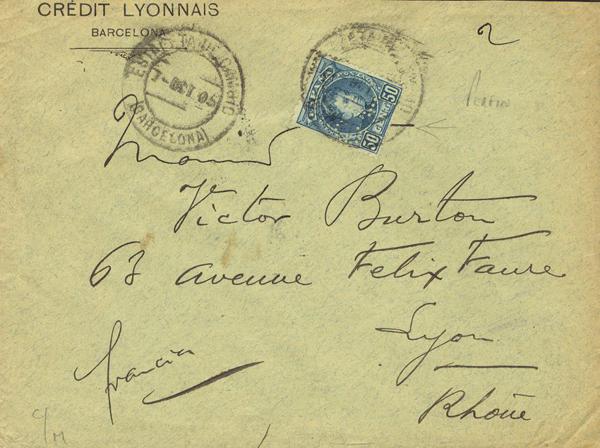 CRÉDIT LYONNAIS
BARCELONA
ESTAFETA DE CAMBIO
7-OCT 05
(BARCELONA)
ESPAÑA
50
50
Victor Burton
63 avenue Felix Faure
Lyon
Rhône
francia